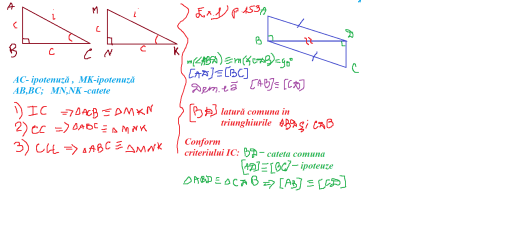 A
C
i
B
C
C
M
C
i
N
C
K
AC- ipotenuză , MK-ipotenuză
AB,BC; MN,NK -catete
1) IC ⇒ ΔACB ≡ ΔMKN
2) CC ⇒ ΔABC ≡ ΔMNK
3) CU ⇒ ΔABC ≡ ΔMNK
Ex.1) p 153
A
B
D
C
m(<ABD) ≡ m(<CDB)=90°
[AD] ≡ [BC]
Dem. că [AB] ≡ [CD]
[BD] latură comuna in
triunghiurile ABD și CDB
Conform
criteriului IC: BD - cateta comuna
[AD] ≡ [BC] - ipotenuze
ΔABD ≡ ΔCDB ⇒ [AB] ≡ [CD]